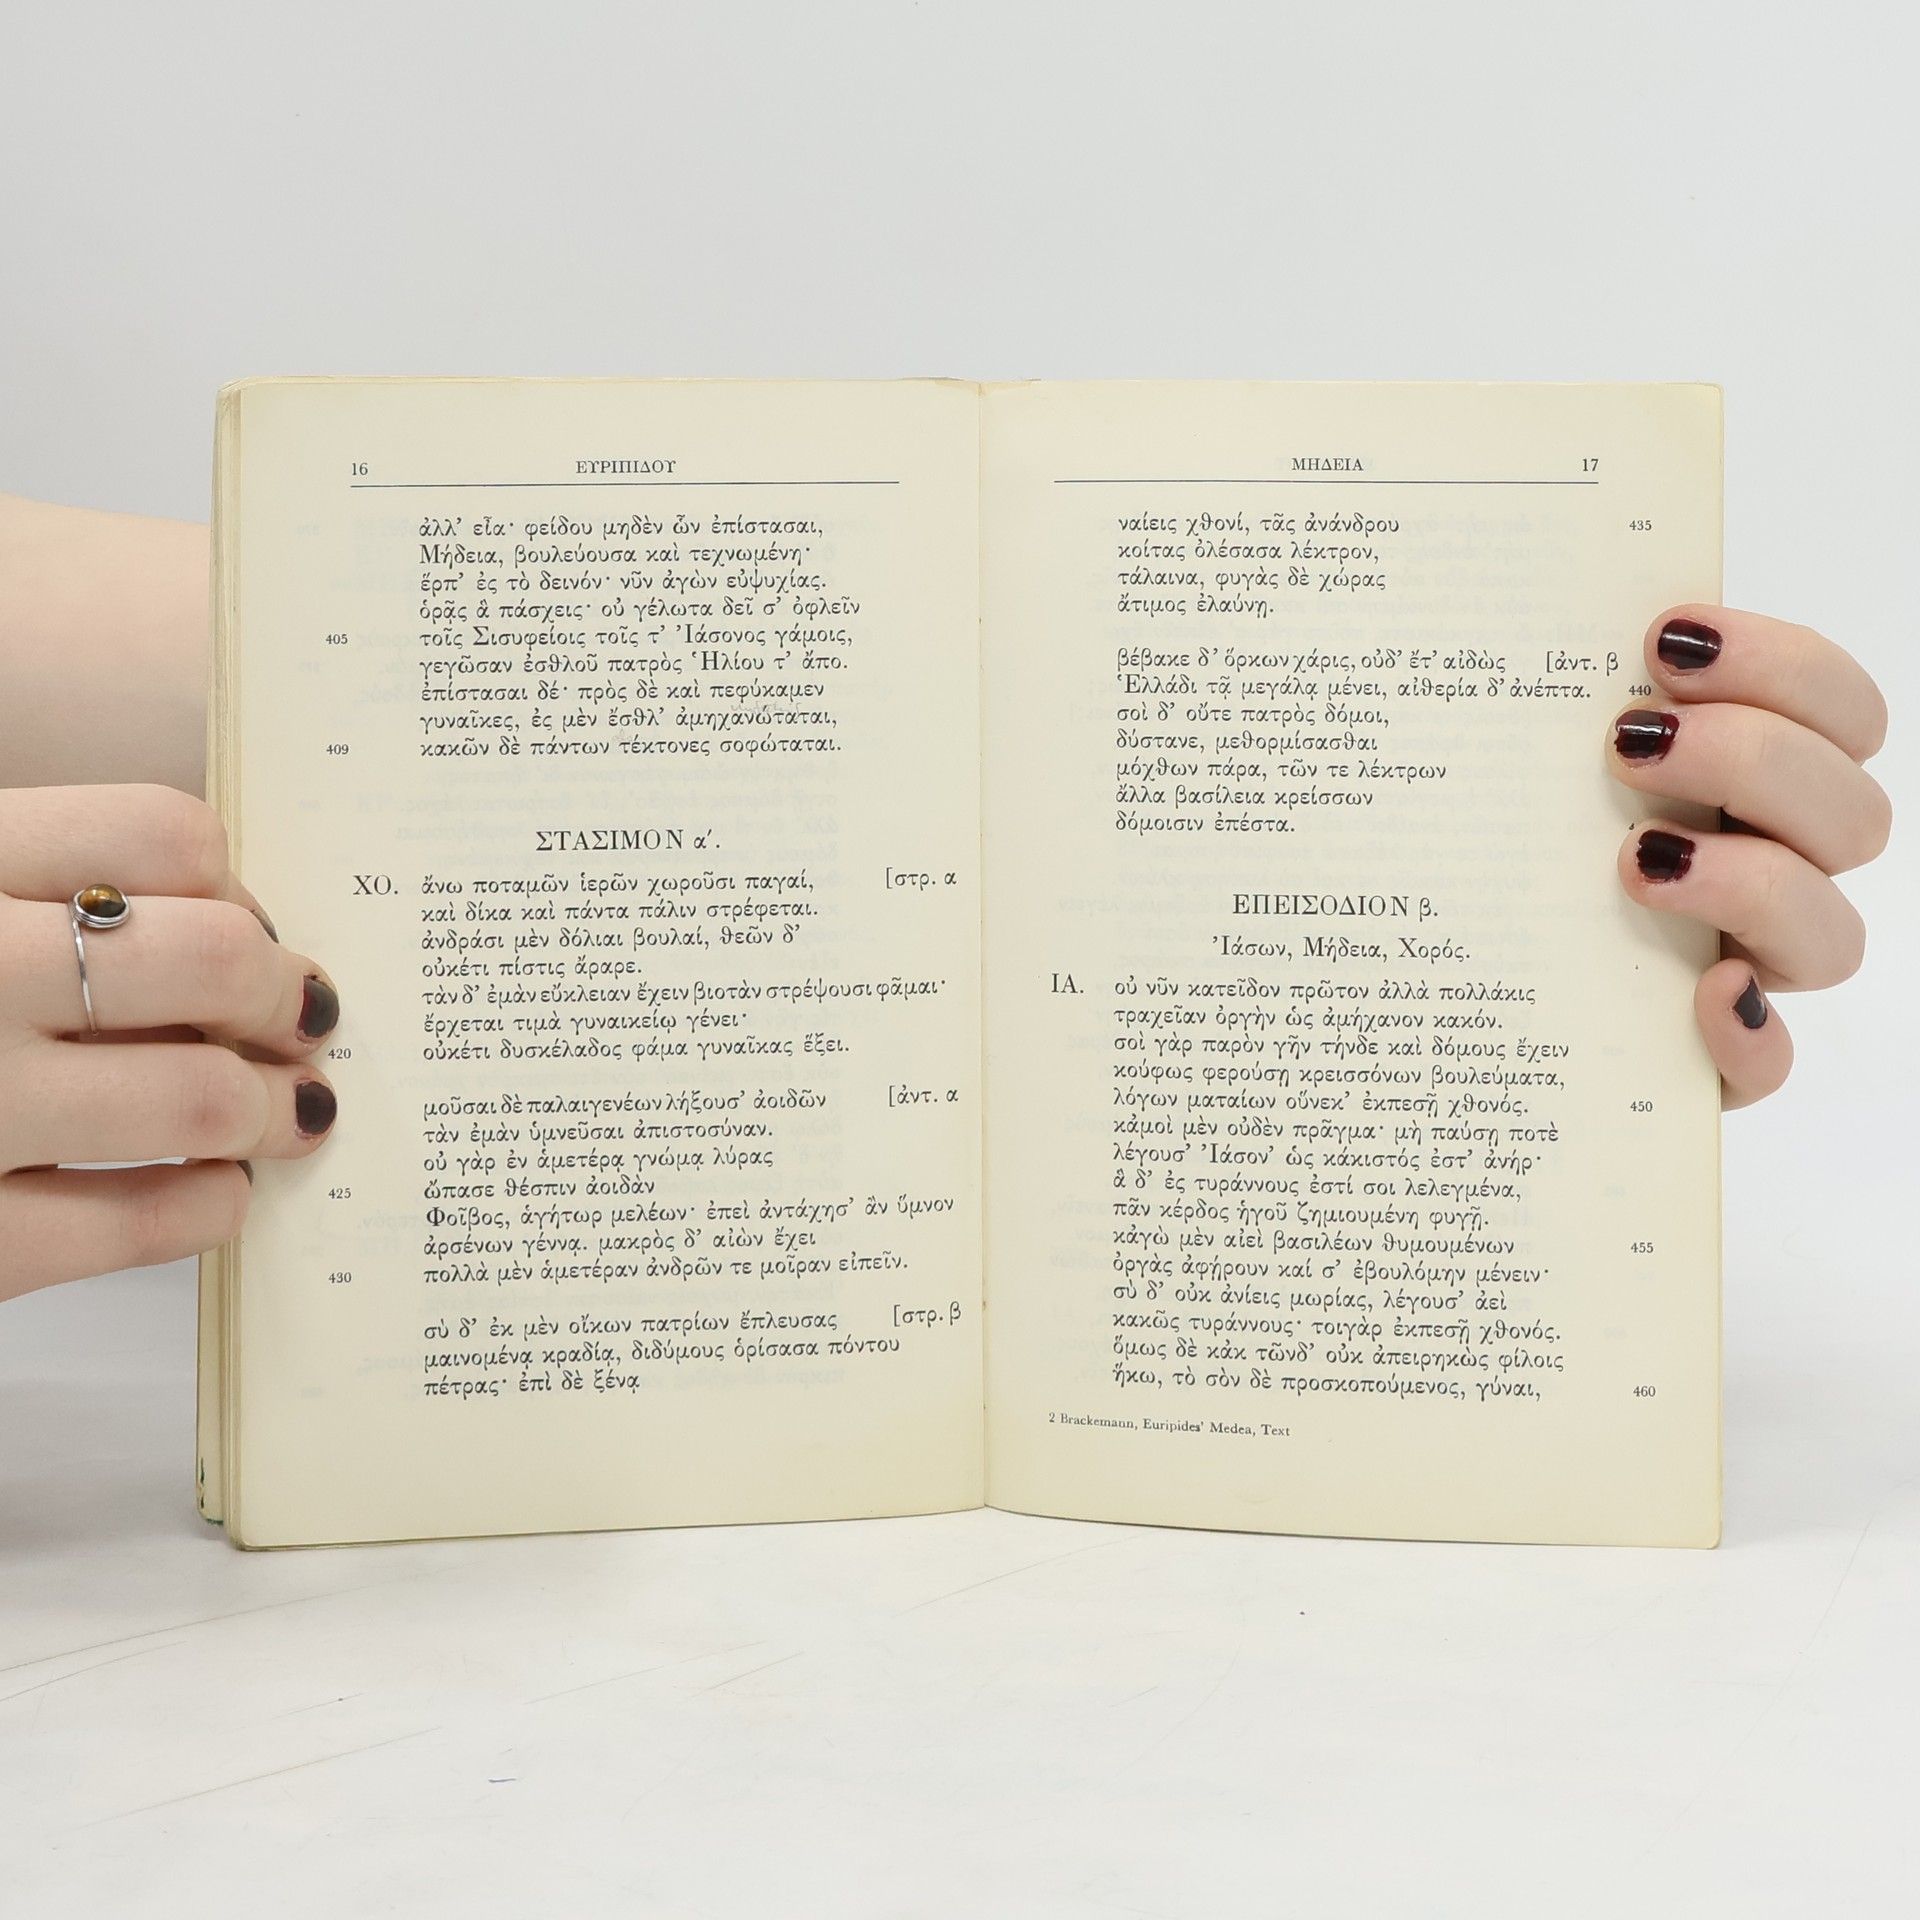 16 ΕΥΡΙΠΙΔΟΥ
ἀλλ’ εἶα· φείδου μηδὲν ὧν ἐπίστασαι,
Μήδεια, βουλεύουσα καὶ τεχνωμένη·
ἕρπ’ ἐς τὸ δεινόν· νῦν ἀγὼν εὐψυχίας.
ὁρᾷς ἃ πάσχεις· οὐ γέλωτα δεῖ σ’ ὀφλεῖν
405 τοῖς Σισυφείοις τοῖς τ’ Ἰάσονος γάμοις,
γεγῶσαν ἐσθλοῦ πατρὸς Ἡλίου τ’ ἄπο.
ἐπίστασαι δέ· πρὸς δὲ καὶ πεφύκαμεν
γυναῖκες, ἐς μὲν ἔσθλ’ ἀμηχανώταται,
409 κακῶν δὲ πάντων τέκτονες σοφώταται.
ΣΤΑΣΙΜΟΝ α′.
ΧΟ. ἄνω ποταμῶν ἱερῶν χωροῦσι παγαί, [στρ. α
καὶ δίκα καὶ πάντα πάλιν στρέφεται.
ἀνδράσι μὲν δόλιαι βουλαί, θεῶν δ’
οὐκέτι πίστις ἄραρε.
τὰν δ’ ἐμὰν εὔκλειαν ἔχειν βιοτὰν στρέψουσι φᾶμαι·
ἔρχεται τιμὰ γυναικείῳ γένει·
420 οὐκέτι δυσκέλαδος φάμα γυναῖκας ἕξει.
μοῦσαι δὲ παλαιγενέων λήξουσ’ ἀοιδῶν [ἀντ. α
τὰν ἐμὰν ὑμνεῦσαι ἀπιστοσύναν.
οὐ γὰρ ἐν ἁμετέρᾳ γνώμᾳ λύρας
425 ὤπασε θέσπιν ἀοιδὰν
Φοῖβος, ἁγήτωρ μελέων· ἐπεὶ ἀντάχησ’ ἂν ὕμνον
ἀρσένων γέννᾳ. μακρὸς δ’ αἰὼν ἔχει
430 πολλὰ μὲν ἁμετέραν ἀνδρῶν τε μοῖραν εἰπεῖν.
σὺ δ’ ἐκ μὲν οἴκων πατρίων ἔπλευσας [στρ. β
μαινομένᾳ κραδίᾳ, διδύμους ὁρίσασα πόντου
πέτρας· ἐπὶ δὲ ξένᾳ
ΜΗΔΕΙΑ 17
ναίεις χθονί, τᾶς ἀνάνδρου 435
κοίτας ὀλέσασα λέκτρον,
τάλαινα, φυγὰς δὲ χώρας
ἄτιμος ἐλαύνῃ.
βέβακε δ’ ὅρκων χάρις, οὐδ’ ἔτ’ αἰδὼς [ἀντ. β
Ἑλλάδι τᾷ μεγάλᾳ μένει, αἰθερία δ’ ἀνέπτα. 440
σοὶ δ’ οὔτε πατρὸς δόμοι,
δύστανε, μεθορμίσασθαι
μόχθων πάρα, τῶν τε λέκτρων
ἄλλα βασίλεια κρείσσων
δόμοισιν ἐπέστα.
ΕΠΕΙΣΟΔΙΟΝ β.
Ἰάσων, Μήδεια, Χορός.
ΙΑ. οὐ νῦν κατεῖδον πρῶτον ἀλλὰ πολλάκις
τραχεῖαν ὀργὴν ὡς ἀμήχανον κακόν.
σοὶ γὰρ παρὸν γῆν τήνδε καὶ δόμους ἔχειν
κούφως φερούσῃ κρεισσόνων βουλεύματα,
λόγων ματαίων οὕνεκ’ ἐκπεσῇ χθονός. 450
κἀμοὶ μὲν οὐδὲν πρᾶγμα· μὴ παύσῃ ποτὲ
λέγουσ’ Ἰάσον’ ὡς κάκιστός ἐστ’ ἀνήρ·
ἃ δ’ ἐς τυράννους ἐστί σοι λελεγμένα,
πᾶν κέρδος ἡγοῦ ζημιουμένη φυγῇ.
κἀγὼ μὲν αἰεὶ βασιλέων θυμουμένων 455
ὀργὰς ἀφῄρουν καί σ’ ἐβουλόμην μένειν·
σὺ δ’ οὐκ ἀνίεις μωρίας, λέγουσ’ ἀεὶ
κακῶς τυράννους· τοιγὰρ ἐκπεσῇ χθονός.
ὅμως δὲ κἀκ τῶνδ’ οὐκ ἀπειρηκὼς φίλοις
ἥκω, τὸ σὸν δὲ προσκοπούμενος, γύναι, 460
2 Brackemann, Euripides’ Medea, Text